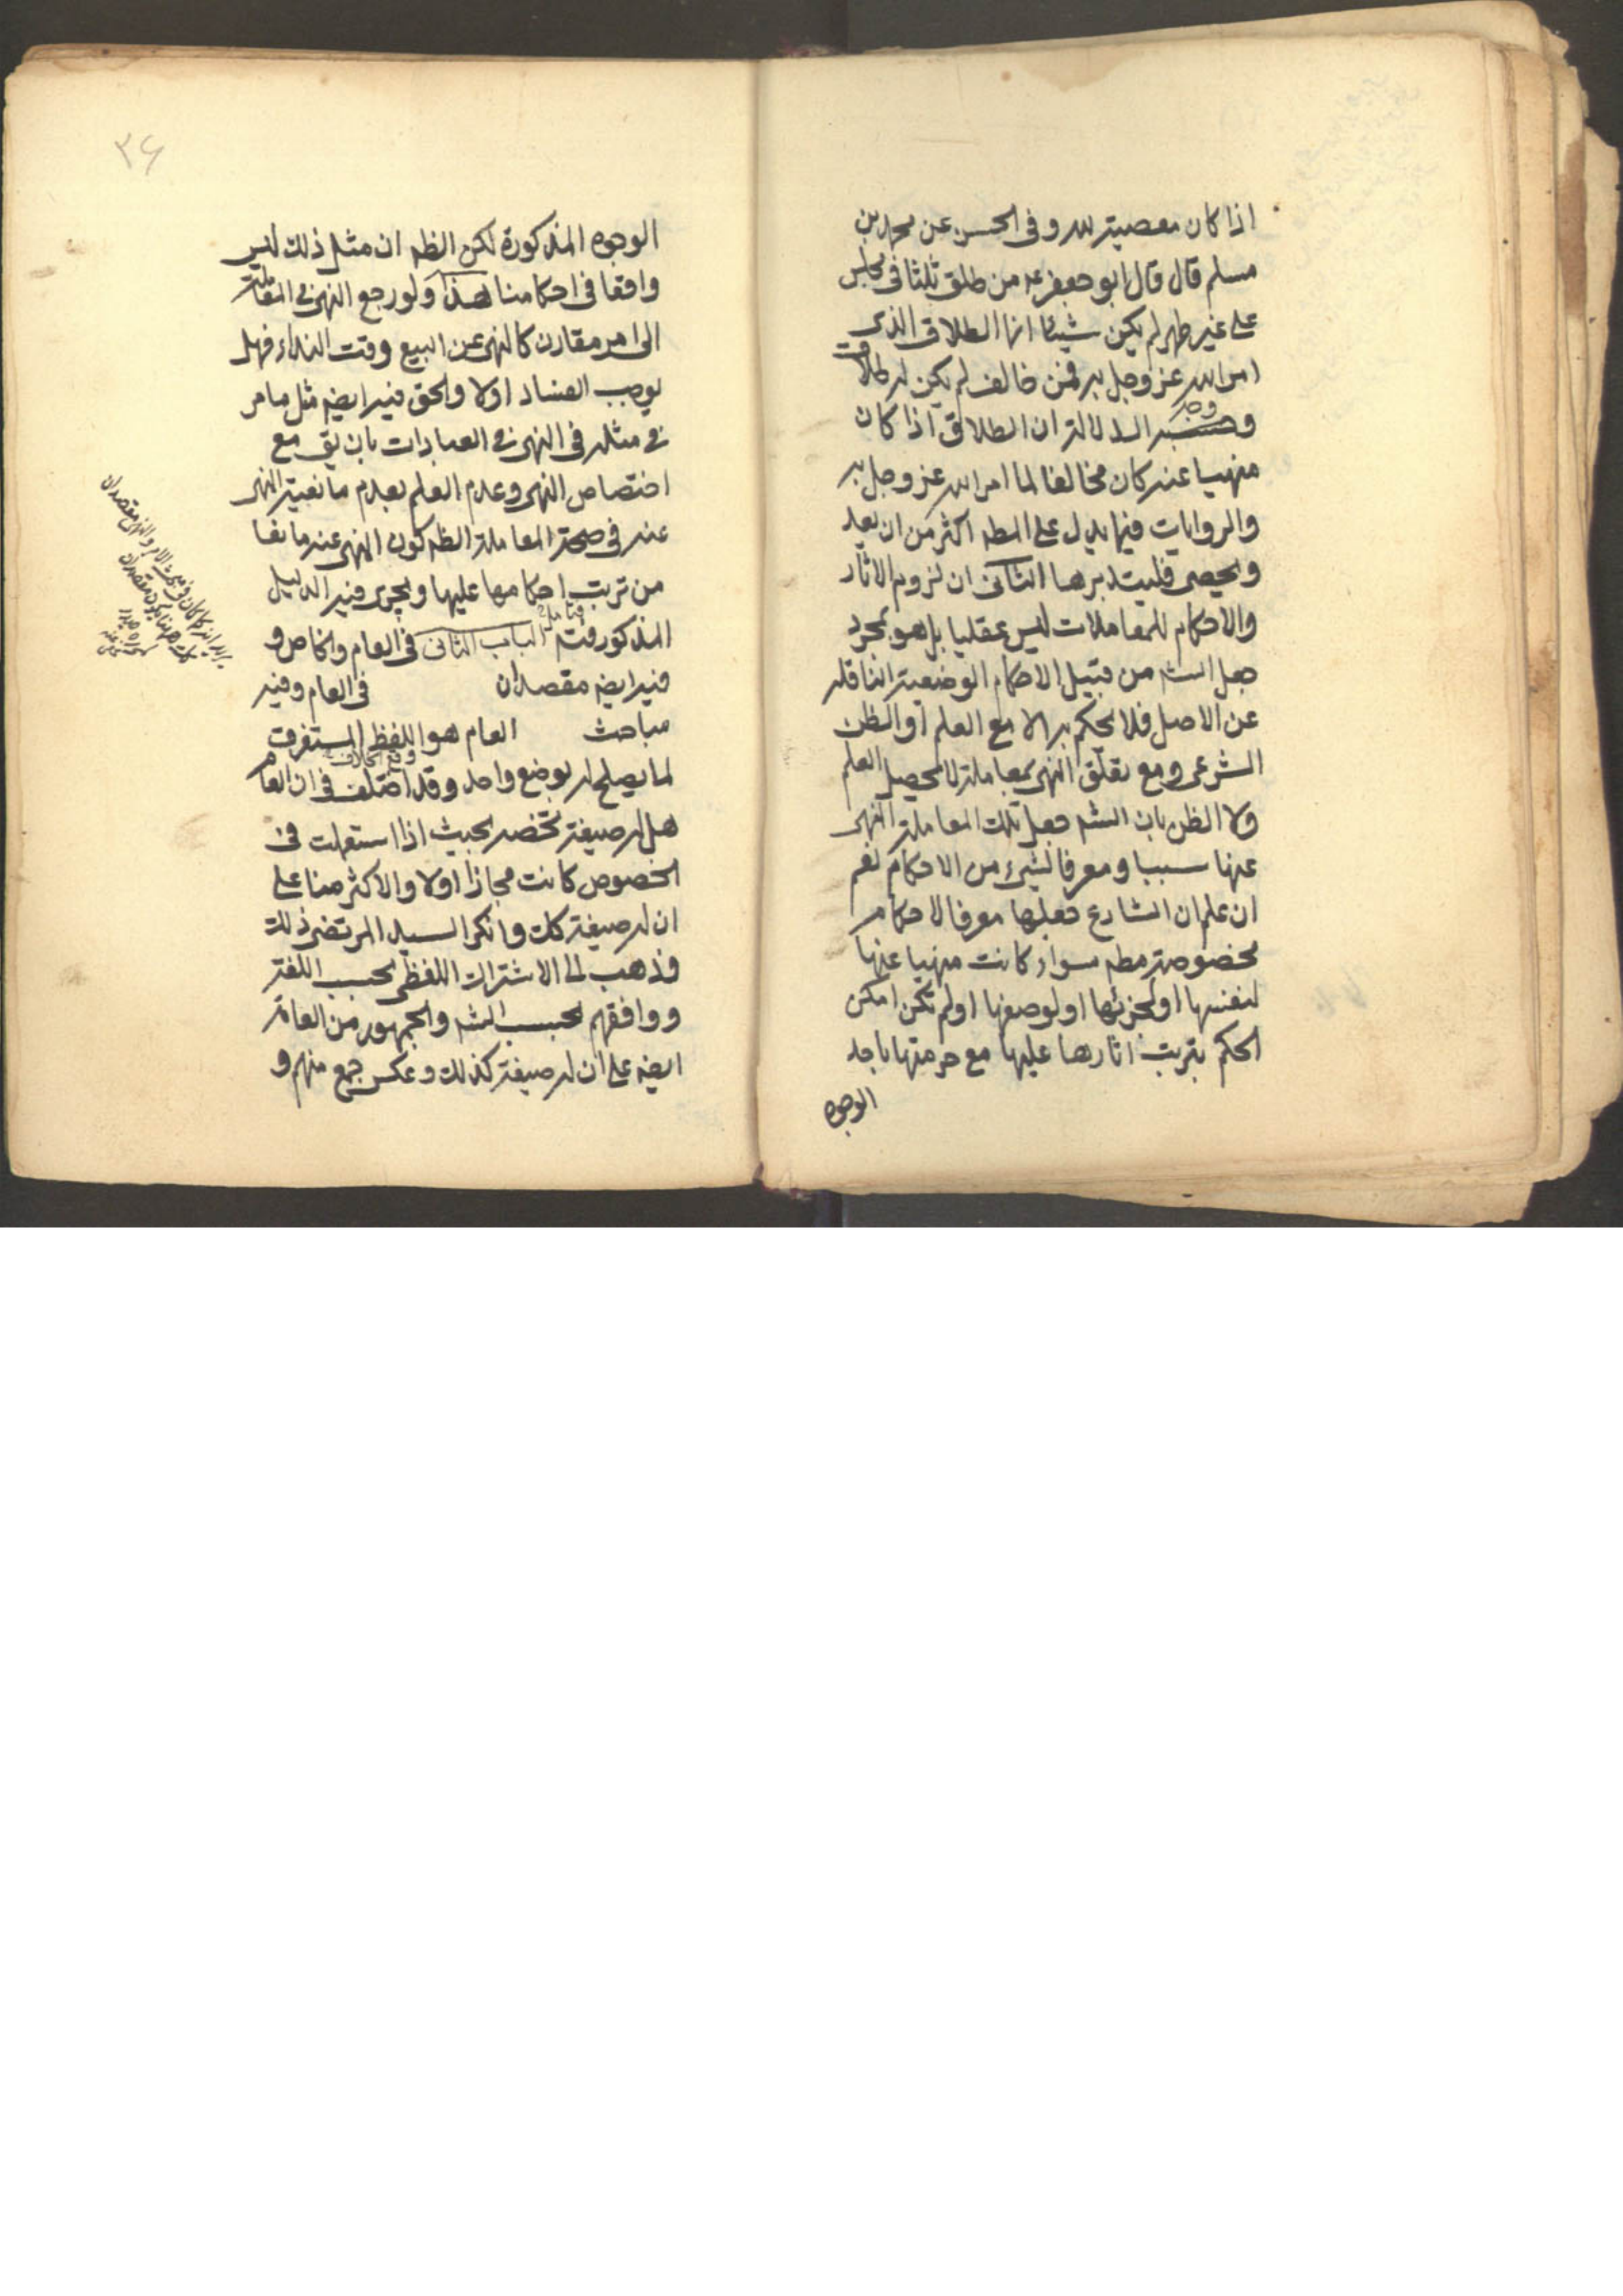 اذا كان معصية لله وفى الحسن عن محمد بن
مسلم قال قال ابو جعفر ع من طلق ثلثا فى مجلس
على غير طهر لم يكن شيئا انما الطلاق الذى
امر الله عز وجل به فمن خالف لم يكن له طلاق
وجه الدلالة ان الطلاق اذا كان
منهيا عنه كان مخالفا لما امر الله عز وجل به
والروايات فيما يدل على المط اكثر من ان يعد
ويحصى فليتدبرها الثانى ان لزوم الاثار
والاحكام للمعاملات ليس عقليا بل هو بمجرد
جعل الش من قبيل الاحكام الوضعية الناقلة
عن الاصل فلا يحكم به الا مع العلم او الظن
الشرعى ومع تعلق النهى بمعاملة لا يحصل العلم
ولا الظن بان الش جعل تلك المعاملة المنهى
عنها سببا ومعرفا لشىء من الاحكام نعم
ان علم ان الشارع جعلها معرفا لاحكام
مخصوصة مط سواء كانت منهيا عنها
لنفسها او لجزئها او لوصفها او لم تكن امكن
الحكم بترتب اثارها عليها مع حرمتها باحد
الوجوه
٣۶
الوجوه المذكورة لكن الظ ان مثل ذلك ليس
واقعا فى احكامنا هذا ولو رجع النهى فى المعاملة
الى امر مقارن كالنهى عن البيع وقت النداء فهل
يوجب الفساد اولا والحق فيه ايض مثل ما مر
فى مثله فى النهى فى العبادات بان يق مع
اختصاص النهى وعدم العلم بعدم مانعية المنهى
عنه فى صحة المعاملة الظ كون المنهى عنه مانعا
من ترتب احكامها عليها ويجرى فيه الدليل
المذكور فتامل الباب الثانى فى العام والخاص و
فيه ايض مقصدان فى العام وفيه
مباحث العام هو اللفظ المستغرق
لما يصلح له بوضع واحد وقد اختلف فى ان العام
وقع الخلاف
هل له صيغة تخصه بحيث اذا استعملت فى
الخصوص كانت مجازا اولا والاكثر منا على
ان له صيغة كك وانكر السيد المرتضى ذلك
وذهب الى الاشتراك اللفظى بحسب اللغة
ووافقهم بحسب الش والجمهور من العامة
ايض على ان له صيغة كذلك وعكس جمع منهم و